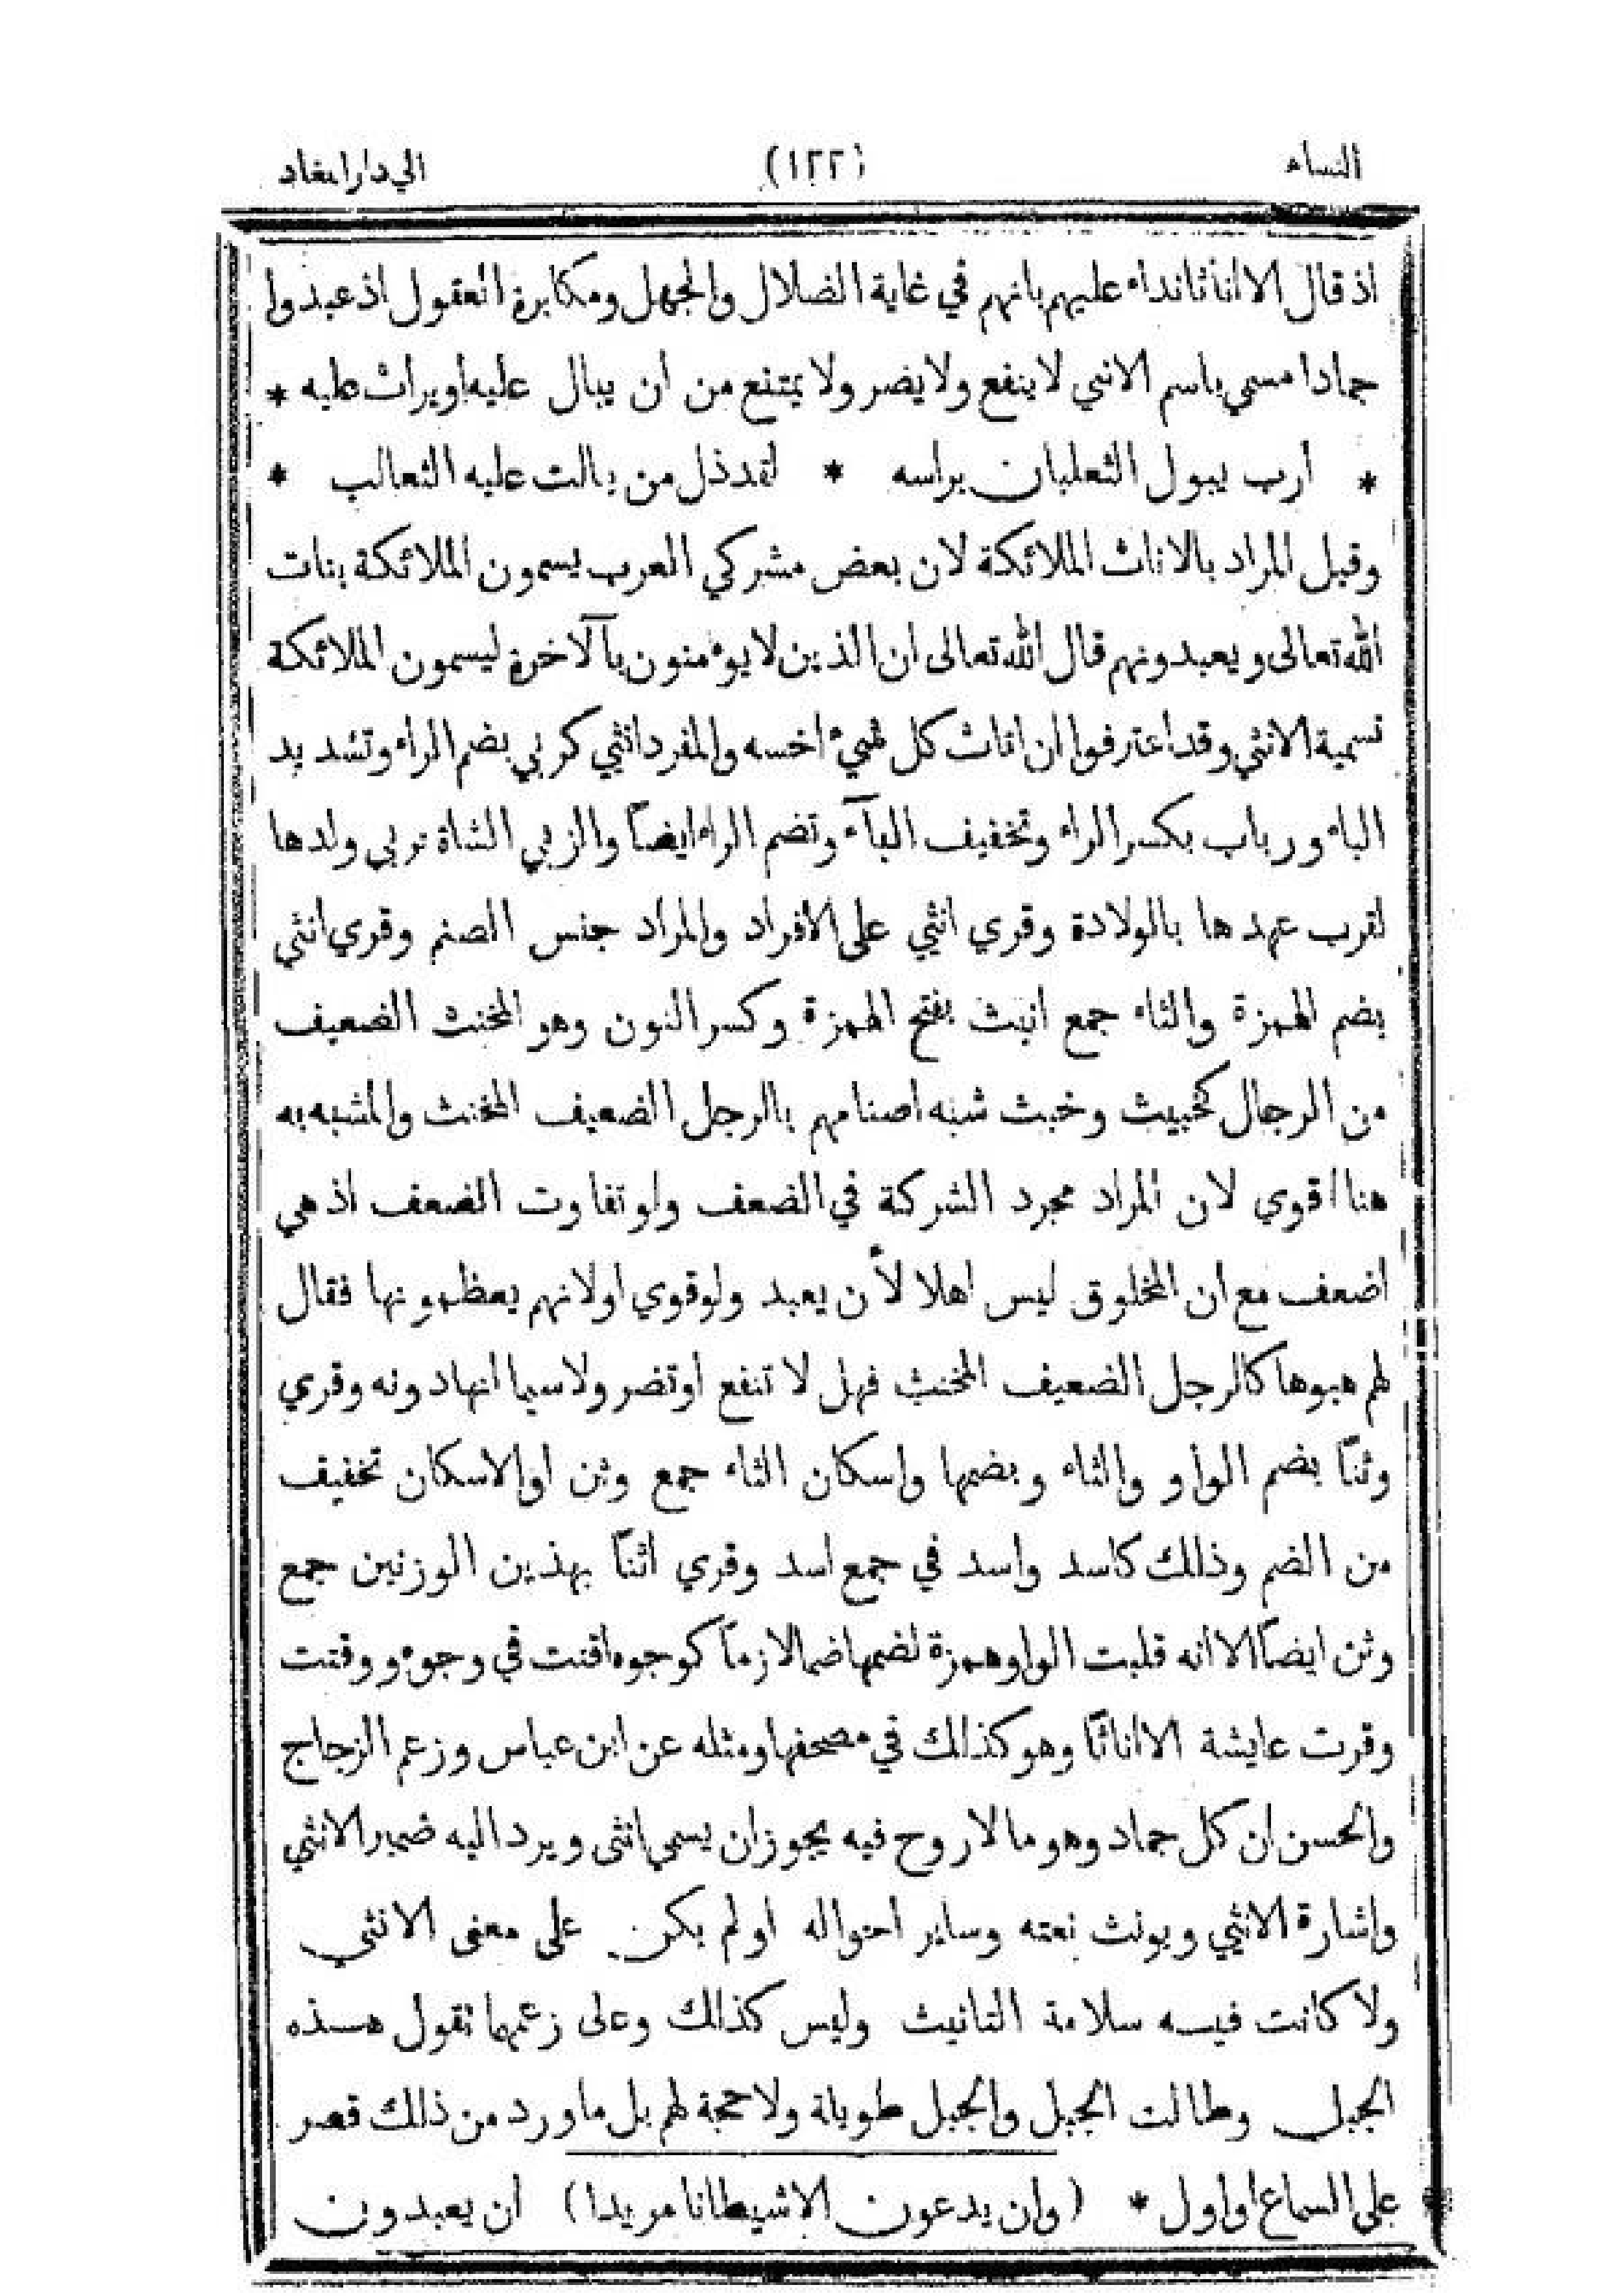 النساء (١٢٢) الي دار المعاد
اذ قال الا اناثا نداء عليهم بانهم في غاية الضلال والجهل ومكابرة العقول اذ عبدوا
جمادا مسمي باسم الانثي لا ينفع ولا يضر ولا يمتنع من ان يبال عليه او يراث عليه *
* أرب يبول الثعلبان براسه * لقد ذل من بالت عليه الثعالب *
وقيل المراد بالاناث الملائكة لان بعض مشركي العرب يسمون الملائكة بنات
الله تعالى ويعبدونهم قال الله تعالى ان الذين لا يوءمنون بآلاخرة ليسمون الملائكة
تسمية الانثي وقد اعترفوا ان اناث كل شيء اخسه والمفرد انثي كربي بضم الراء وتشديد
الباء ورباب بكسر الراء وتخفيف البآء وتضم الراء ايضاً والربي الشاة تربي ولدها
لقرب عهدها بالولادة وقري انثي على الافراد والمراد جنس الصنم وقري انثي
بضم الهمزة والثاء جمع انيث بفتح الهمزة وكسر النون وهو المخنث الضعيف
من الرجال كخبيث وخبث شبه اصنامهم بالرجل الضعيف المخنث والمشبه به
هنا اقوي لان المراد مجرد الشركة في الضعف ولو تفاوت الضعف اذ هي
اضعف مع ان المخلوق ليس اهلا لأن يعبد ولو قوي او لانهم يعظمونها فقال
لهم هبوها كالرجل الضعيف المخنث فهل لا تنفع او تضر ولا سيما انها دونه وقري
وثناً بضم الواو والثاء وبضمها واسكان الثاء جمع وثن او الاسكان تخفيف
من الضم وذلك كاسد واسد في جمع اسد وقري اثناً بهذين الوزنين جمع
وثن ايضاً الا انه قلبت الواو همزة لضمها ضما لازماً كوجوه اقتت في وجوه ووقتت
وقرت عايشة الا اناثًا وهو كذالك في مصحفها ومثله عن ابن عباس وزعم الزجاج
والحسن ان كل جماد وهو ما لا روح فيه يجوز ان يسمى انثى ويرد اليه ضمير الانثي
واشارة الانثي ويونث نعته وساير احواله او لم يكن على معنى الانثي
ولا كانت فيه سلامة التانيث وليس كذالك وعلى زعمهما تقول هذه
الجبل وطالت الجبل والجبل طويلة ولا حجة لهم بل ما ورد من ذلك قصر
على السماع اواول * (وان يدعون الا شيطانا مريدا) ان يعبدون